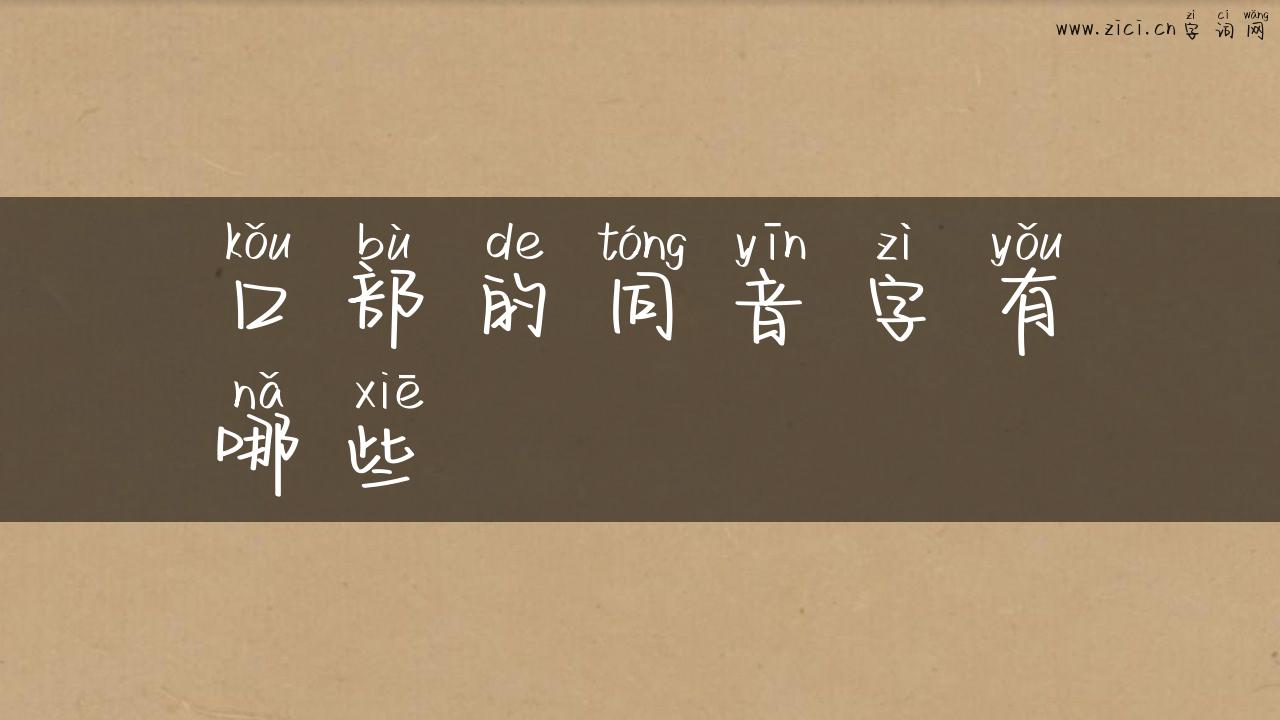 zì cí wǎng
www.zici.cn 字词网
kǒu bù de tóng yīn zì yǒu
口部的同音字有
nǎ xiē
哪些